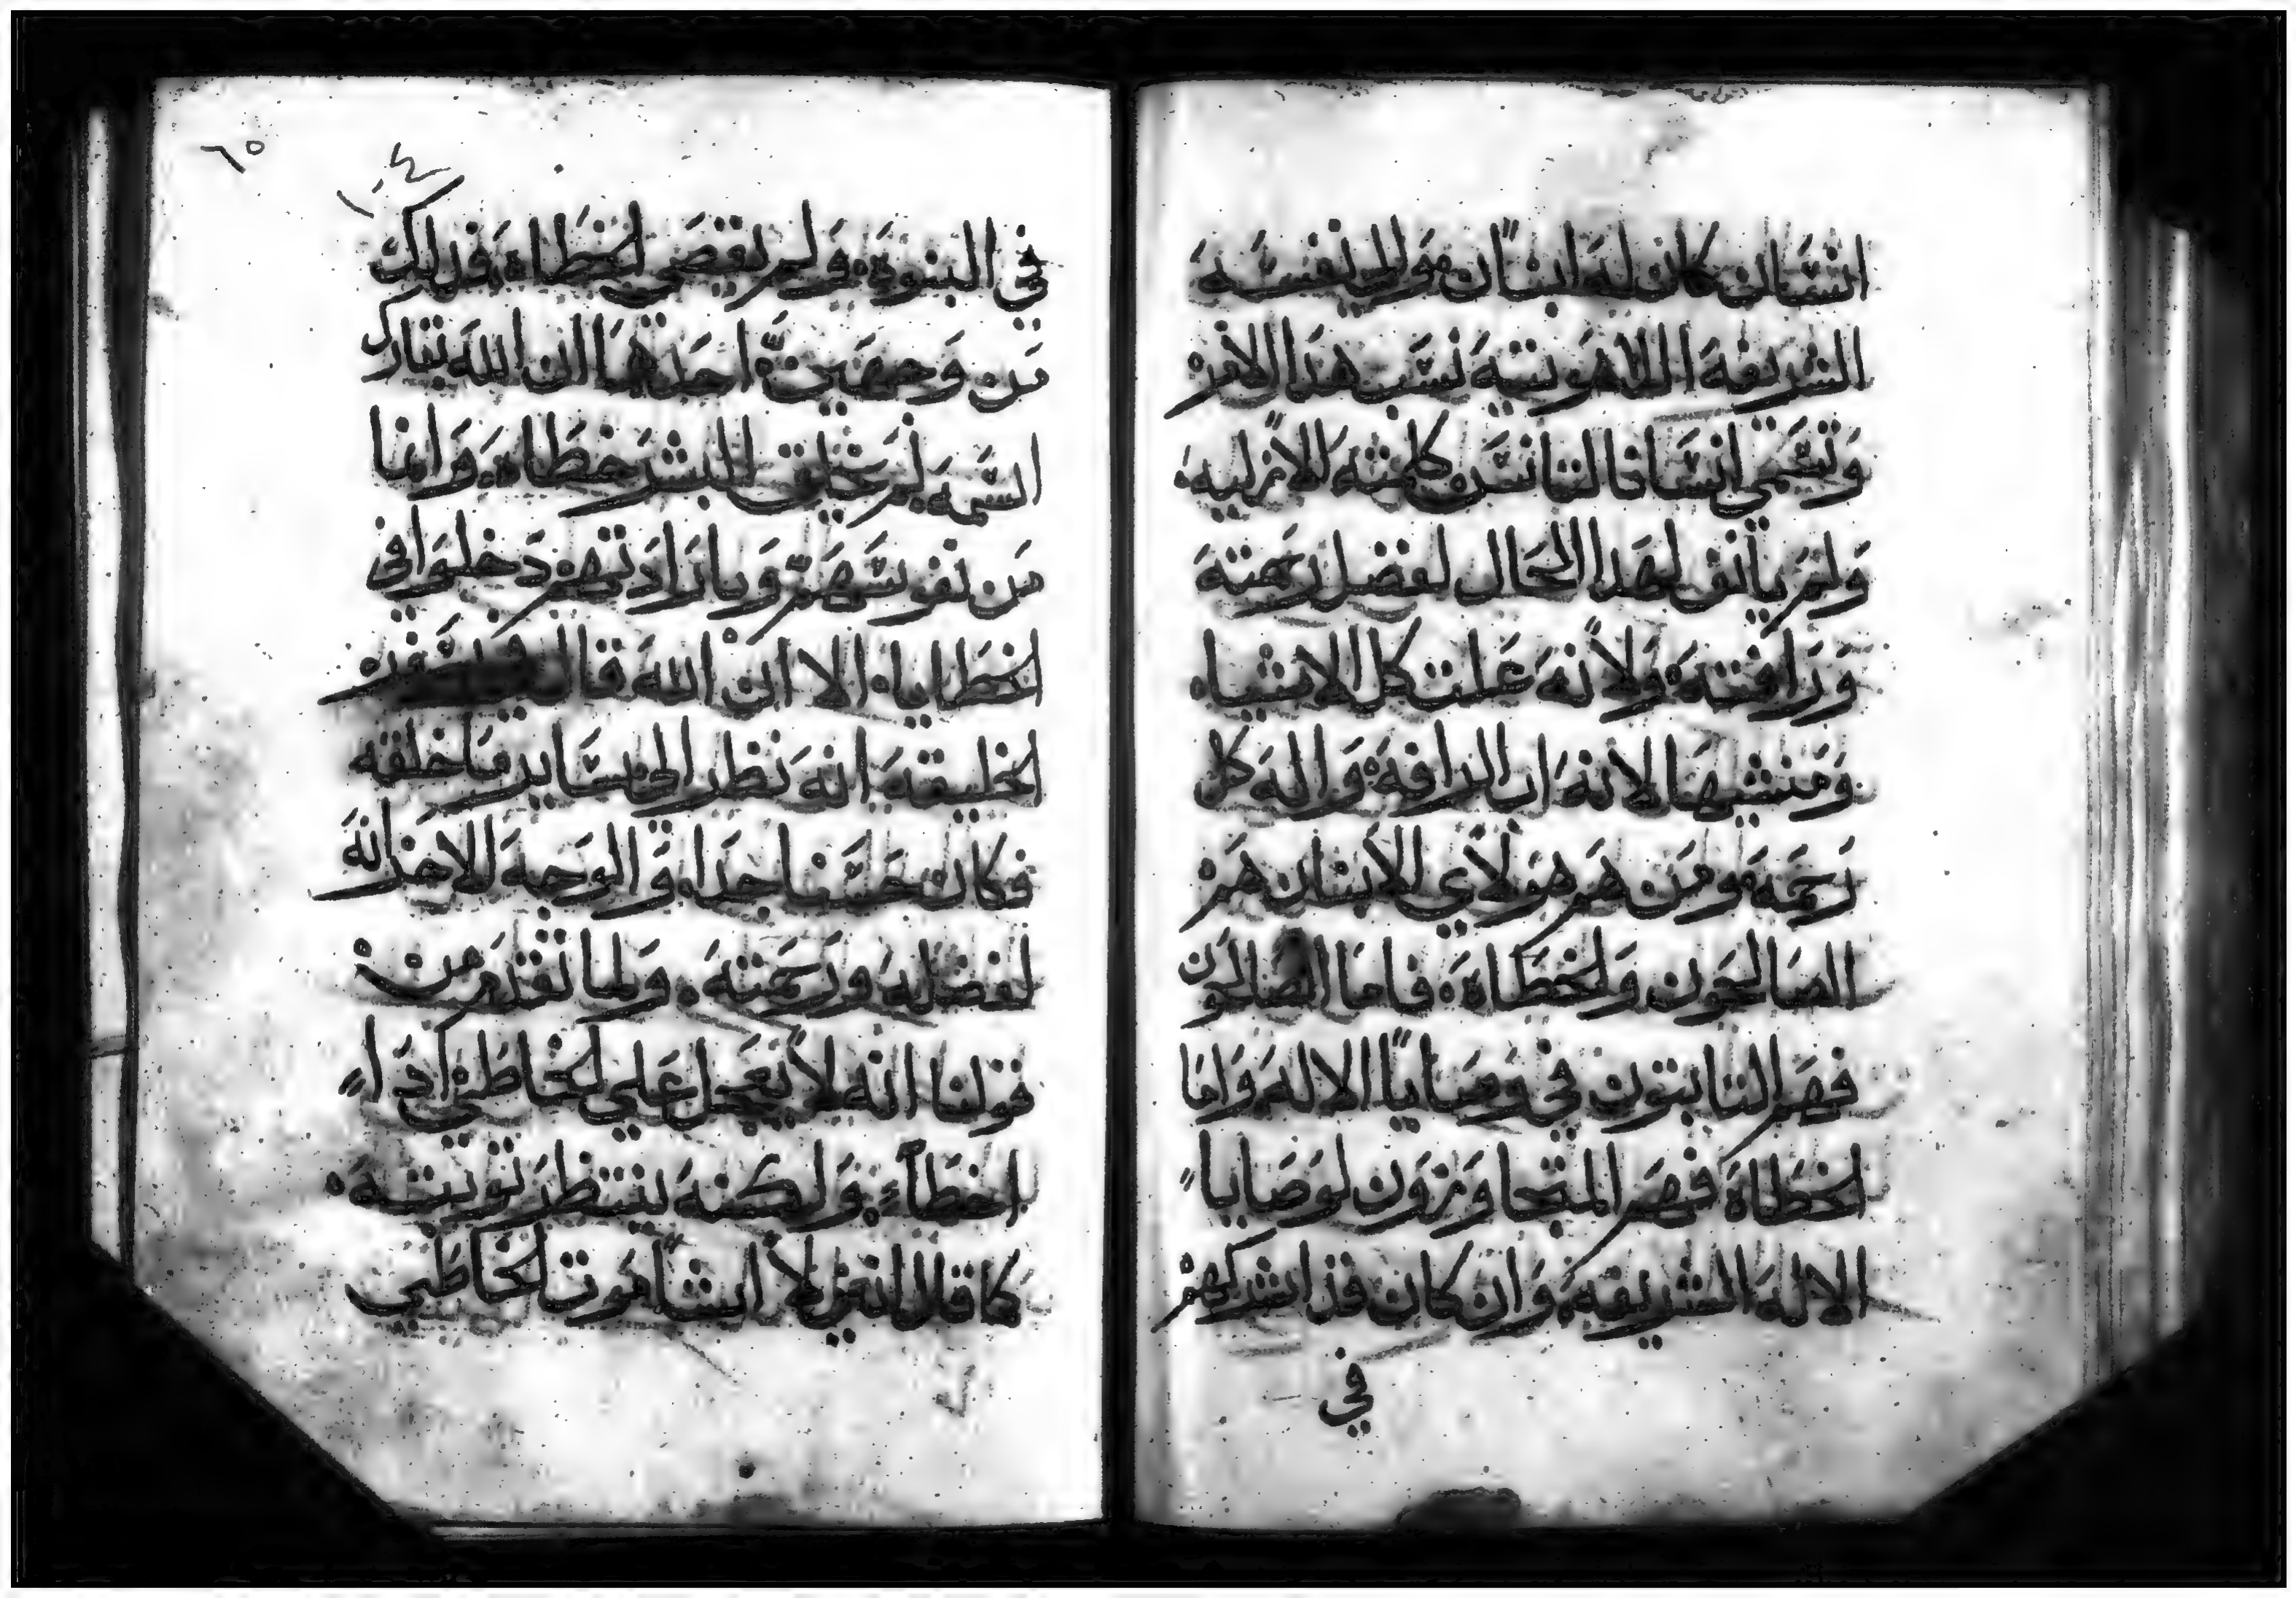 انسَان كان لهَ ابنًان هَو الي نفسَه
الشريفهَ اللاهوتيهَ نسَب هذا الامرْ
وَتسَمي انسَانا لتانسَ كلمته الازليه
وَلمَ يانف لهَذا الحَال لفضل رحمتهَ
وَرَافته وَلاًنهَ علت كل الاشياه
وَمَنشيهَا لانهَ اب الرافهَ وَالهَ كل
رَحمَهَ ومَن همَ هوَلاًي الابنان همَ
الصَالحَون وَلخطَاهَ فامَا الصَالحَون
فهَم التابتون في وصَاياً الالهَ وَامَا
الخطَاهَ فهَم المتجاوَزوَن لوَصَايا
الالهَ الشريفهَ وَان كان قد اشركهمْ
في
٦٥
في البنوهَ وَلم يقصَي لخطَاهَ وَدلك
مَن وَجهَين احدَهمَا ان اللهَ تبارك
اسَمهَ لمَ يخلق البشر خطَاهَ وَانما
مَن نفوسَهَم وَبارَادَتهم دَخلوَا في
الخطَاياه الا ان اللهَ قال
لخليقهَ انهَ نظر الي سَاير مَا خلقه
فكان حَسَنا جدَا وَالوَجهَ الاخرَ انهَ
لفضلهَ ورَحمَتهَ وَلما تقدَم منْ
قولنا انه لاً يعَجل علي لخاطي اذَا
اخطَاء وَلكنهَ ينتظرَ توبتهَ
كما قال انيْ لاً اشاً مَوت لخاطَي